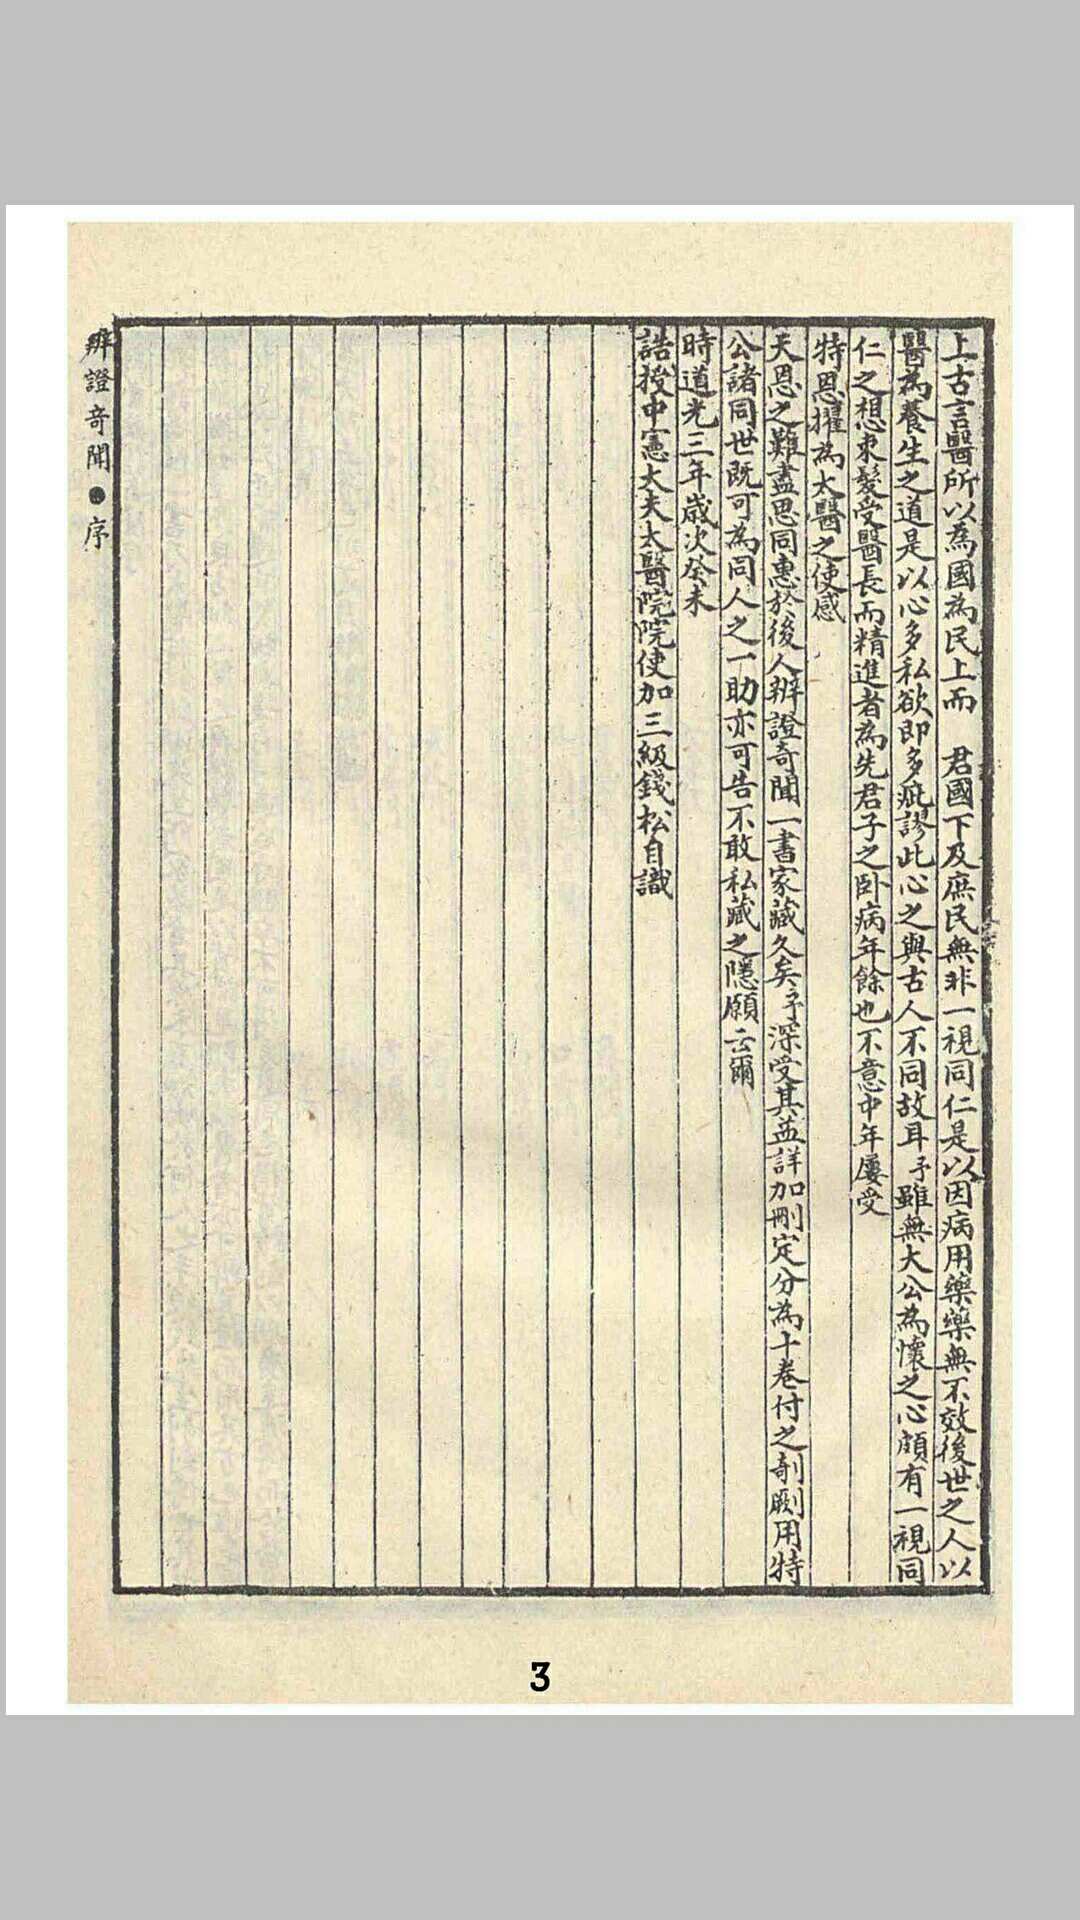 上古言醫所以爲國為民上而　君國下及庶民無非一視同仁是以因病用藥藥無不效後世之人以
醫為養生之道是以心多私欲即多疵謬此心之與古人不同故耳予雖無大公為懷之心頗有一視同
仁之想束髮受醫長而精進者為先君子之卧病年餘也不意中年屢受
特恩擢為太醫之使感
天恩之難盡思同惠於後人辨證奇聞一書家藏久矣予深受其益詳加刪定分為十卷付之剞劂用特
公諸同世既可為同人之一助亦可告不敢私藏之隱願云爾
時道光三年歲次癸未
誥授中憲大夫太醫院院使加三級錢松自識
辨證奇聞●序
3